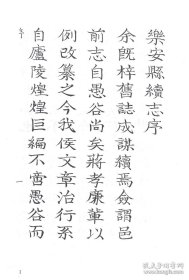 樂安縣續志序
余旣梓舊誌成謀續焉僉謂邑
前志自愚谷尚矣蔣孝廉輩以
例改纂之今我侯文章治行系
自廬陵煌煌巨編不啻愚谷而
序
一
1